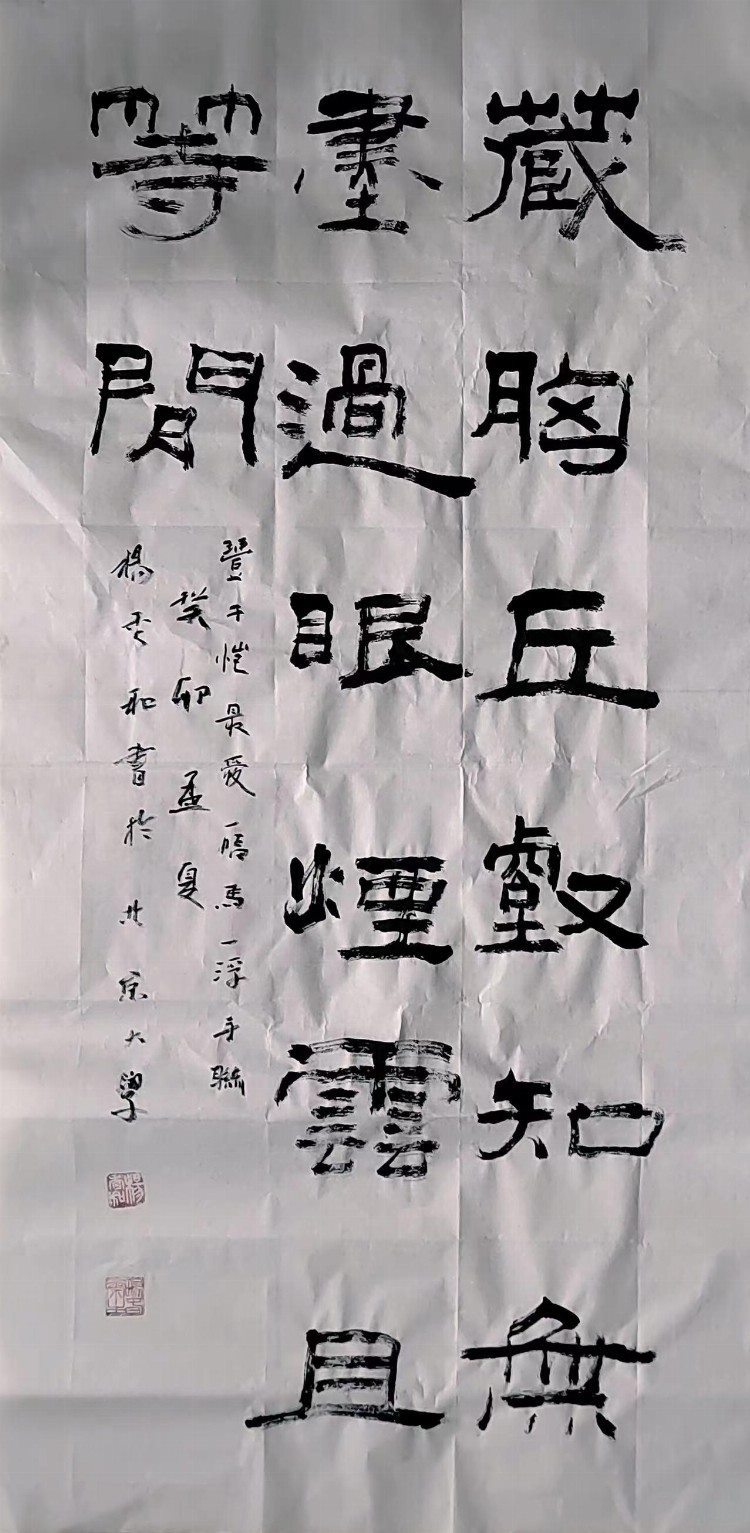 藏胸丘壑知無
盡過眼煙雲且
等閒
豐子愷最愛一幅馬一浮手聯
癸卯孟夏
楊秀和書於北京大學